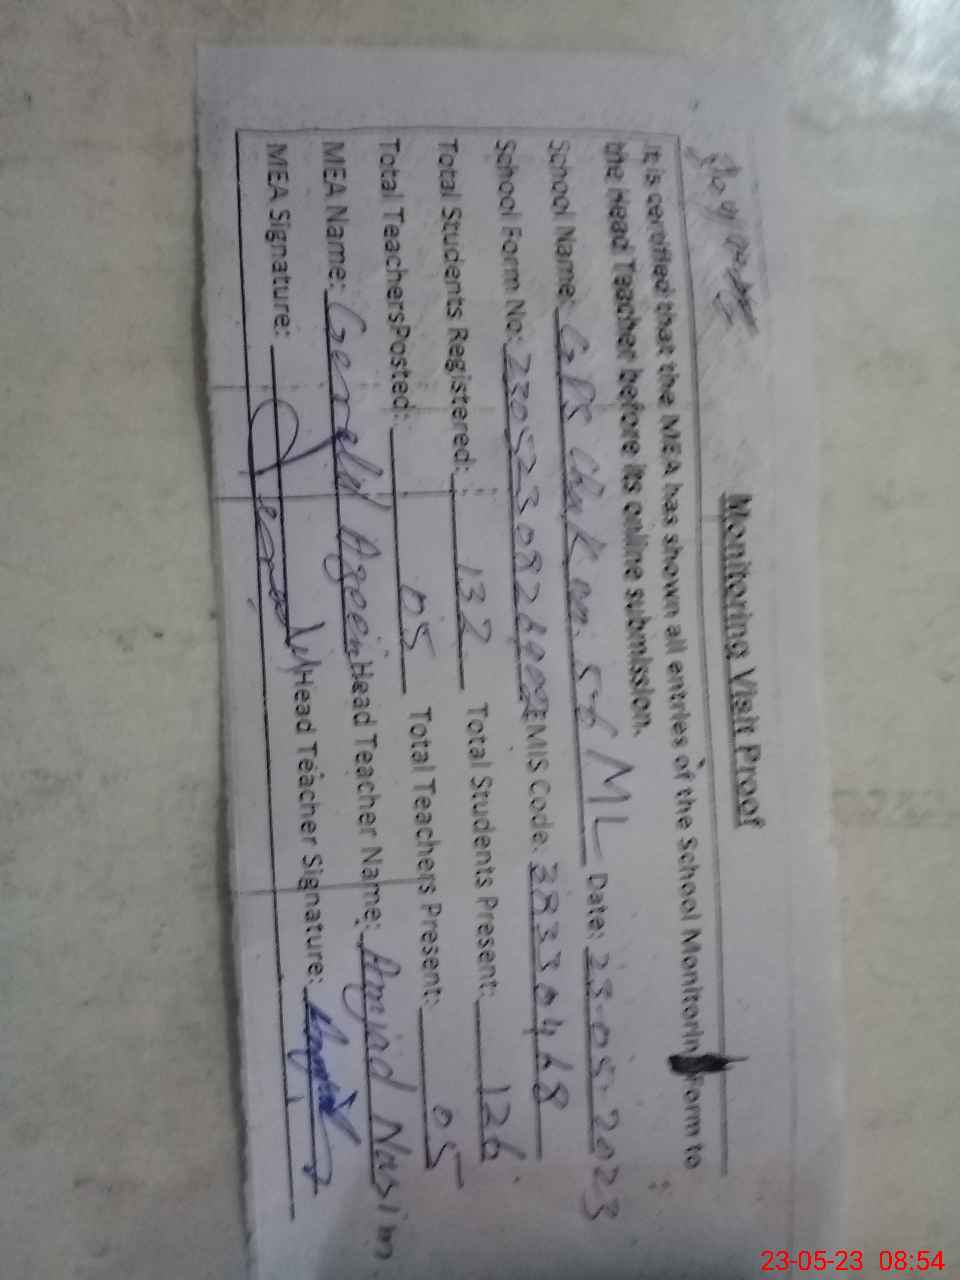 Monitoring Visit Proof
It is certified that the MEA has shown all entries of the School Monitoring Form to
the Head Teacher before its online submission.
School Name: GPS Chak No. 56 ML Date: 23-05-2023
School Form No: EMIS Code:
Total Students Registered: 132 Total Students Present: 126
Total TeachersPosted: 05 Total Teachers Present: 05
MEA Name: Head Teacher Name: Amjad Nasim
MEA Signature: Head Teacher Signature: Amjad
23-05-23 08:54